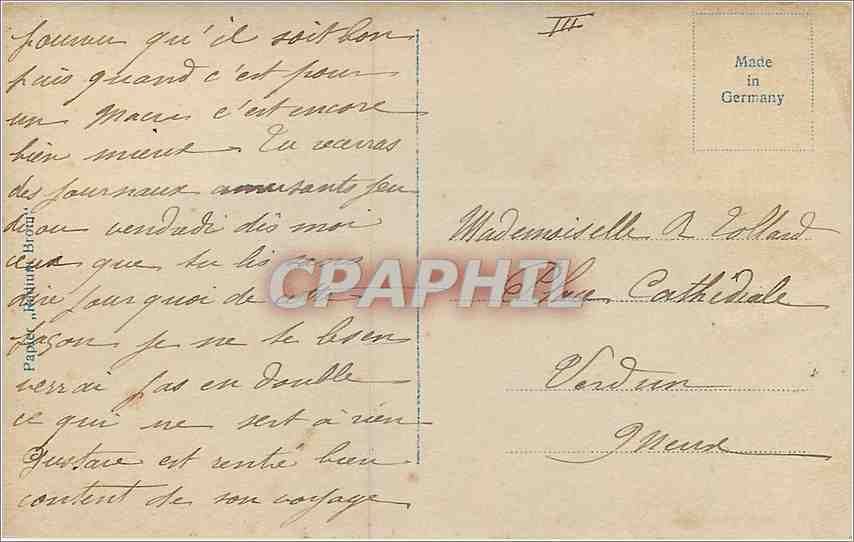 pourvu qu'il soit bon
puis quand c'est pour
un c'est encore
bien mieux Tu recevras
des journaux amusants jeu
di ou vendredi dis moi
ceux que tu lis sans
dire pourquoi de cette
façon je ne te les en
verrai pas en double
ce qui ne sert à rien
Gustave est rentré bien
content de son voyage
Papier „Radium-Brom"
III
Made
in
Germany
Mademoiselle R Tollard
Place Cathédrale
Verdun
Meuse
CPAPHIL